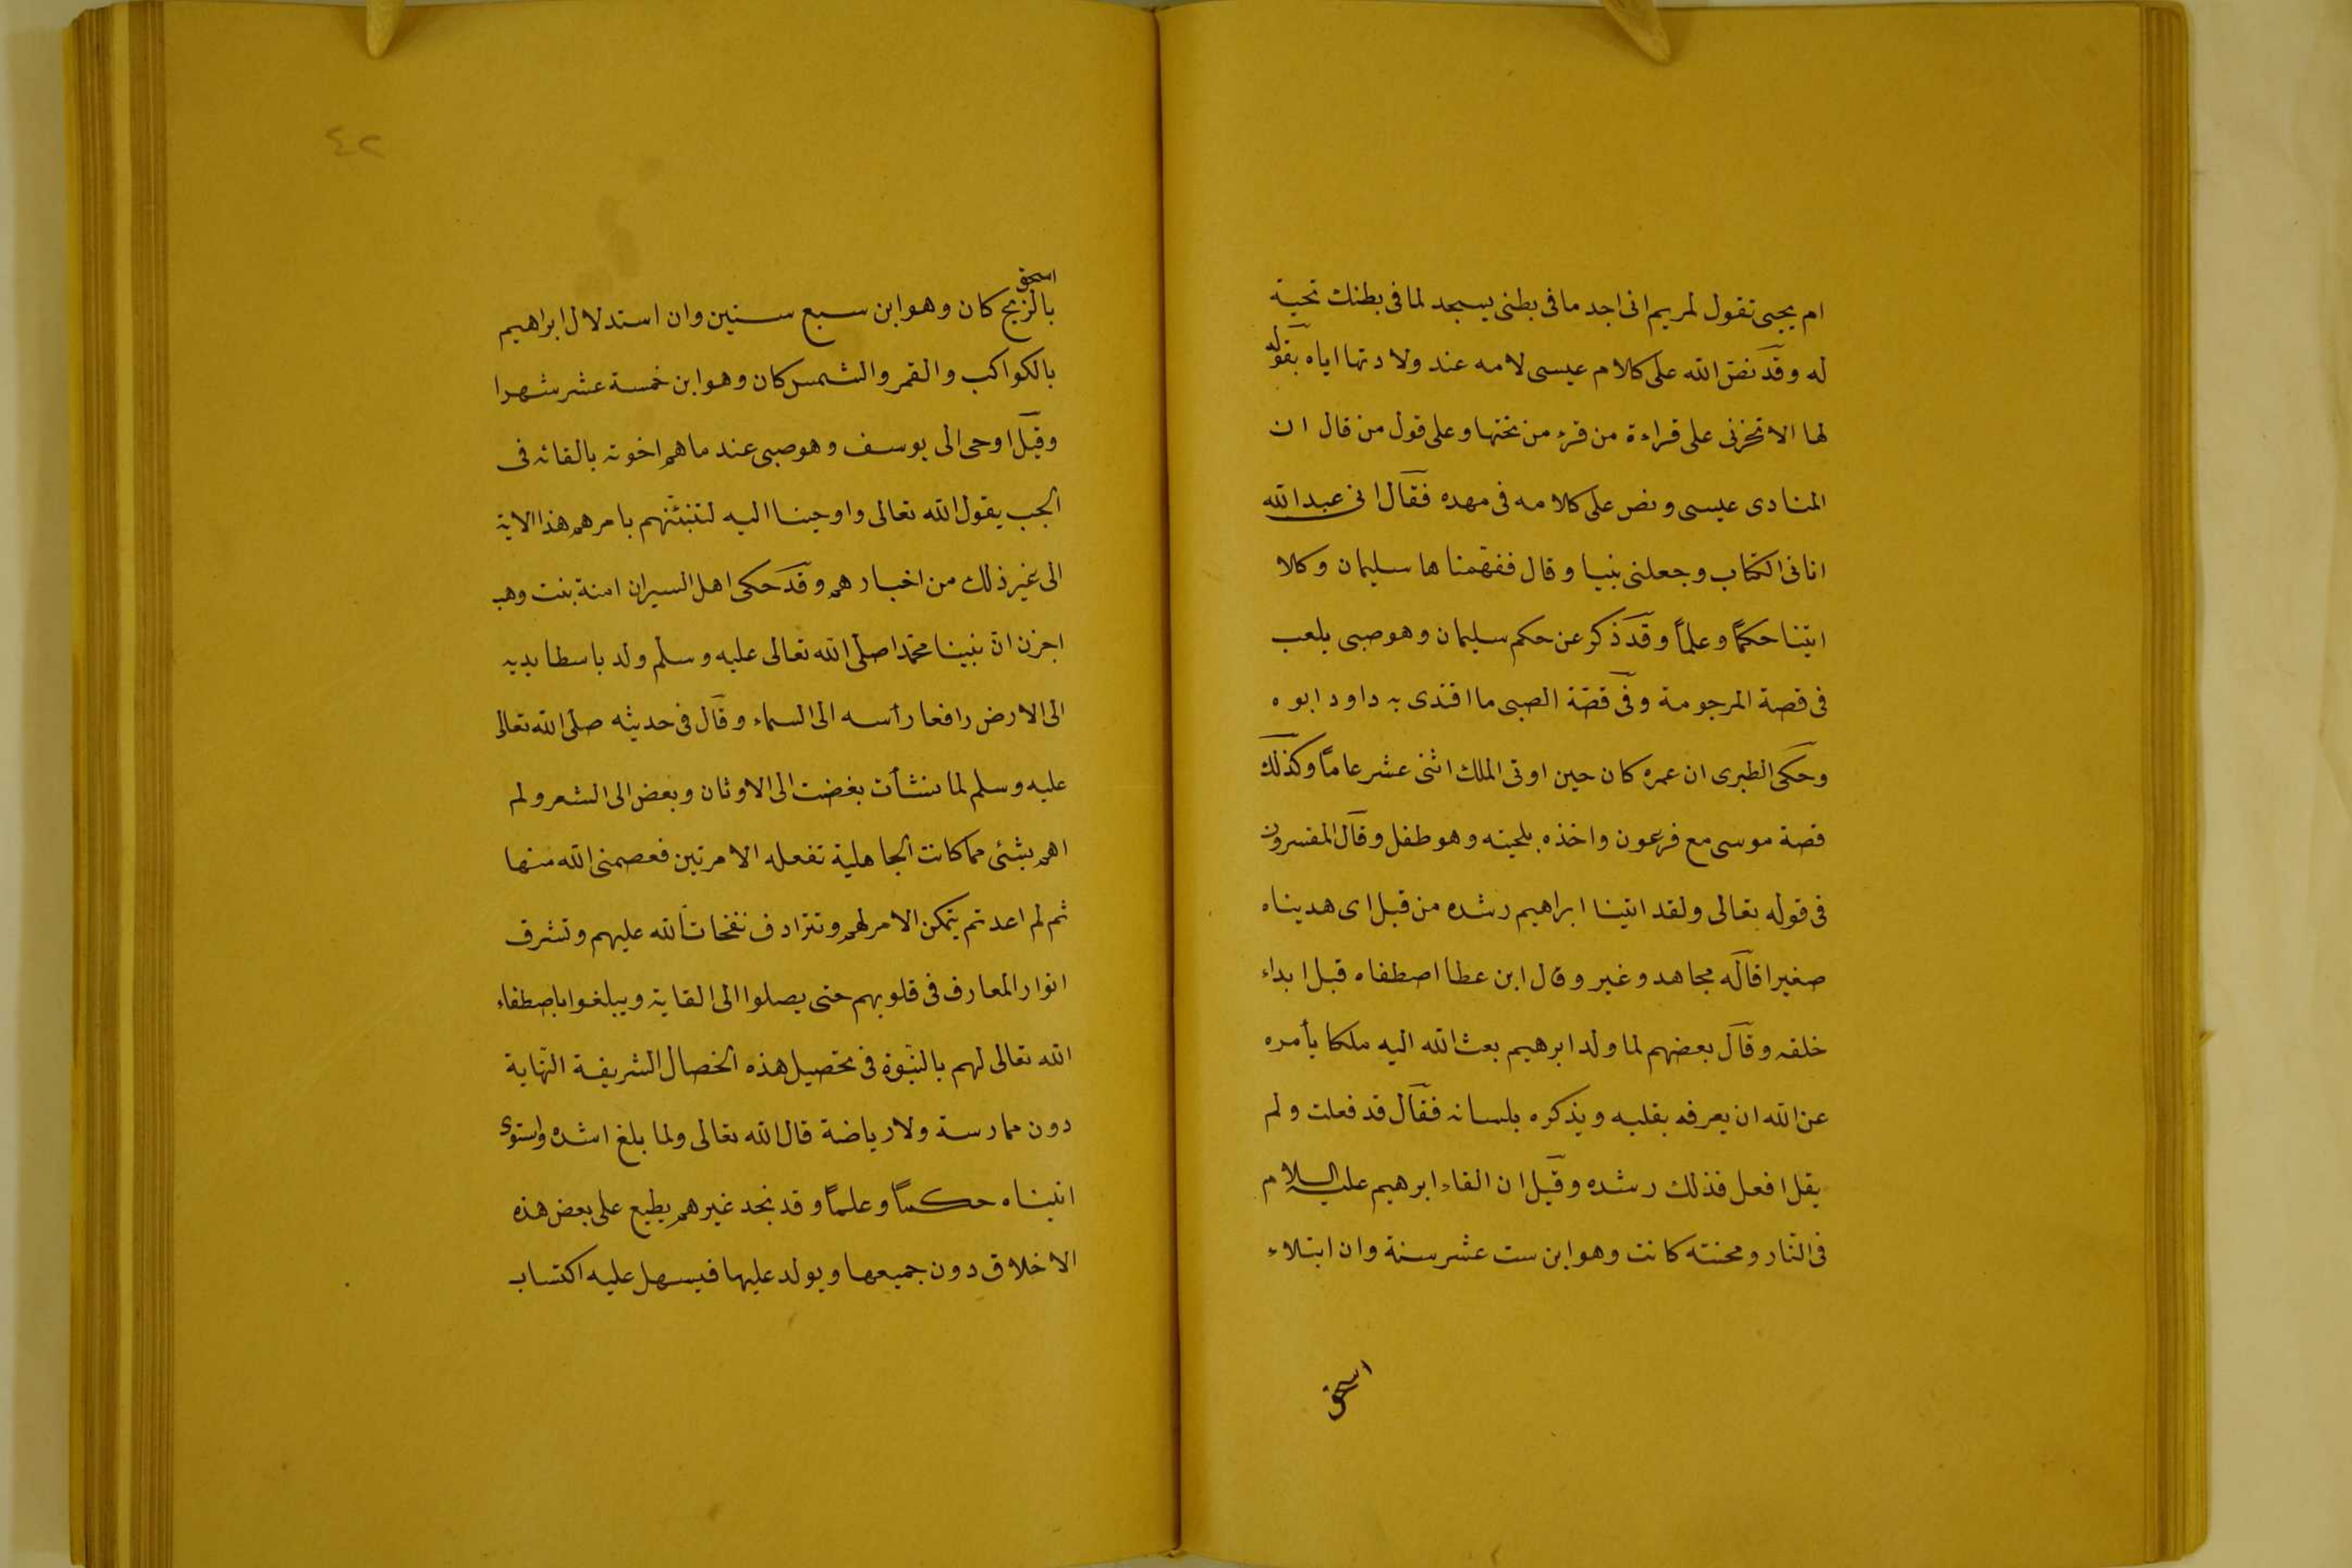 ام يحيى تقول لمريم انى اجد ما فى بطنى يسجد لما فى بطنك تحية
له وقد نص الله على كلام عيسى لامه عند ولادتها اياه بقوله
لها الا تحزنى على قراءة من قرء من تحتها وعلى قول من قال ان
المنادى عيسى ونص على كلامه فى مهده فقال انى عبد الله
اتانى الكتاب وجعلنى نبيا وقال ففهمناها سليمان وكلا
اتينا حكمًا وعلمًا وقد ذكر عن حكم سليمان وهو صبى يلعب
فى قصة المرجومة وفى قصّة الصبى ما اقتدى به داود ابوه
وحكى الطبرى ان عمره كان حين اوتى الملك اثنى عشر عامًا وكذلك
قصة موسى مع فرعون واخذه بلحيته وهو طفل وقال المفسرون
فى قوله تعالى ولقد اتينا ابراهيم رشده من قبل اى هديناه
صغيرا قاله مجاهد وغير وقال ابن عطا اصطفاه قبل ابداء
خلقه وقال بعضهم لما ولد ابرهيم بعث الله اليه ملكا يأمره
عن الله ان يعرفه بقلبه ويذكره بلسانه فقال قد فعلت ولم
يقل افعل فذلك رشده وقيل ان القاء ابرهيم عليه السلام
فى النّار ومحنته كانت وهو ابن ست عشر سنة وان ابتلاء
اسحق
٤٢
اسحق
بالزبح كان وهو ابن سبع سنين وان استدلال ابراهيم
بالكواكب والقمر والشمس كان وهو ابن خمسة عشر شهرا
وقيل اوحى الى يوسف وهو صبى عند ما هم اخوته بالقائه فى
الجب يقول الله تعالى واوحينا اليه لتنبئنهم بامرهم هذا الاية
الى غير ذلك من اخبارهم وقد حكى اهل السير ان امنة بنت وهب
اخبرن انّ نبينا محمّدا صلّى الله تعالى عليه وسلّم ولد باسطا يديه
الى الارض رافعا رأسه الى السماء وقال فى حديثه صلّى الله تعالى
عليه وسلم لما ننشأت بغضت الى الاوثان وبغض الى الشعر ولم
اهم بشئى مما كانت الجاهلية تفعله الا مرتين فعصمنى الله منها
ثم لم اعد ثم يتمكن الامر لهم وتترادف نفحات الله عليهم وتشرق
انوار المعارف فى قلوبهم حتى يصلوا الى الغاية ويبلغوا باصطفاء
الله تعالى لهم بالنبّوة فى تحصيل هذه الخصال الشريفة النّهاية
دون ممارسة ولا رياضة قال الله تعالى ولما بلغ اشده واستوى
اتيناه حكمًا وعلمًا وقد نجد غيرهم يطبع على بعض هذه
الاخلاق دون جميعها ويولد عليها فيسهل عليه اكتساب